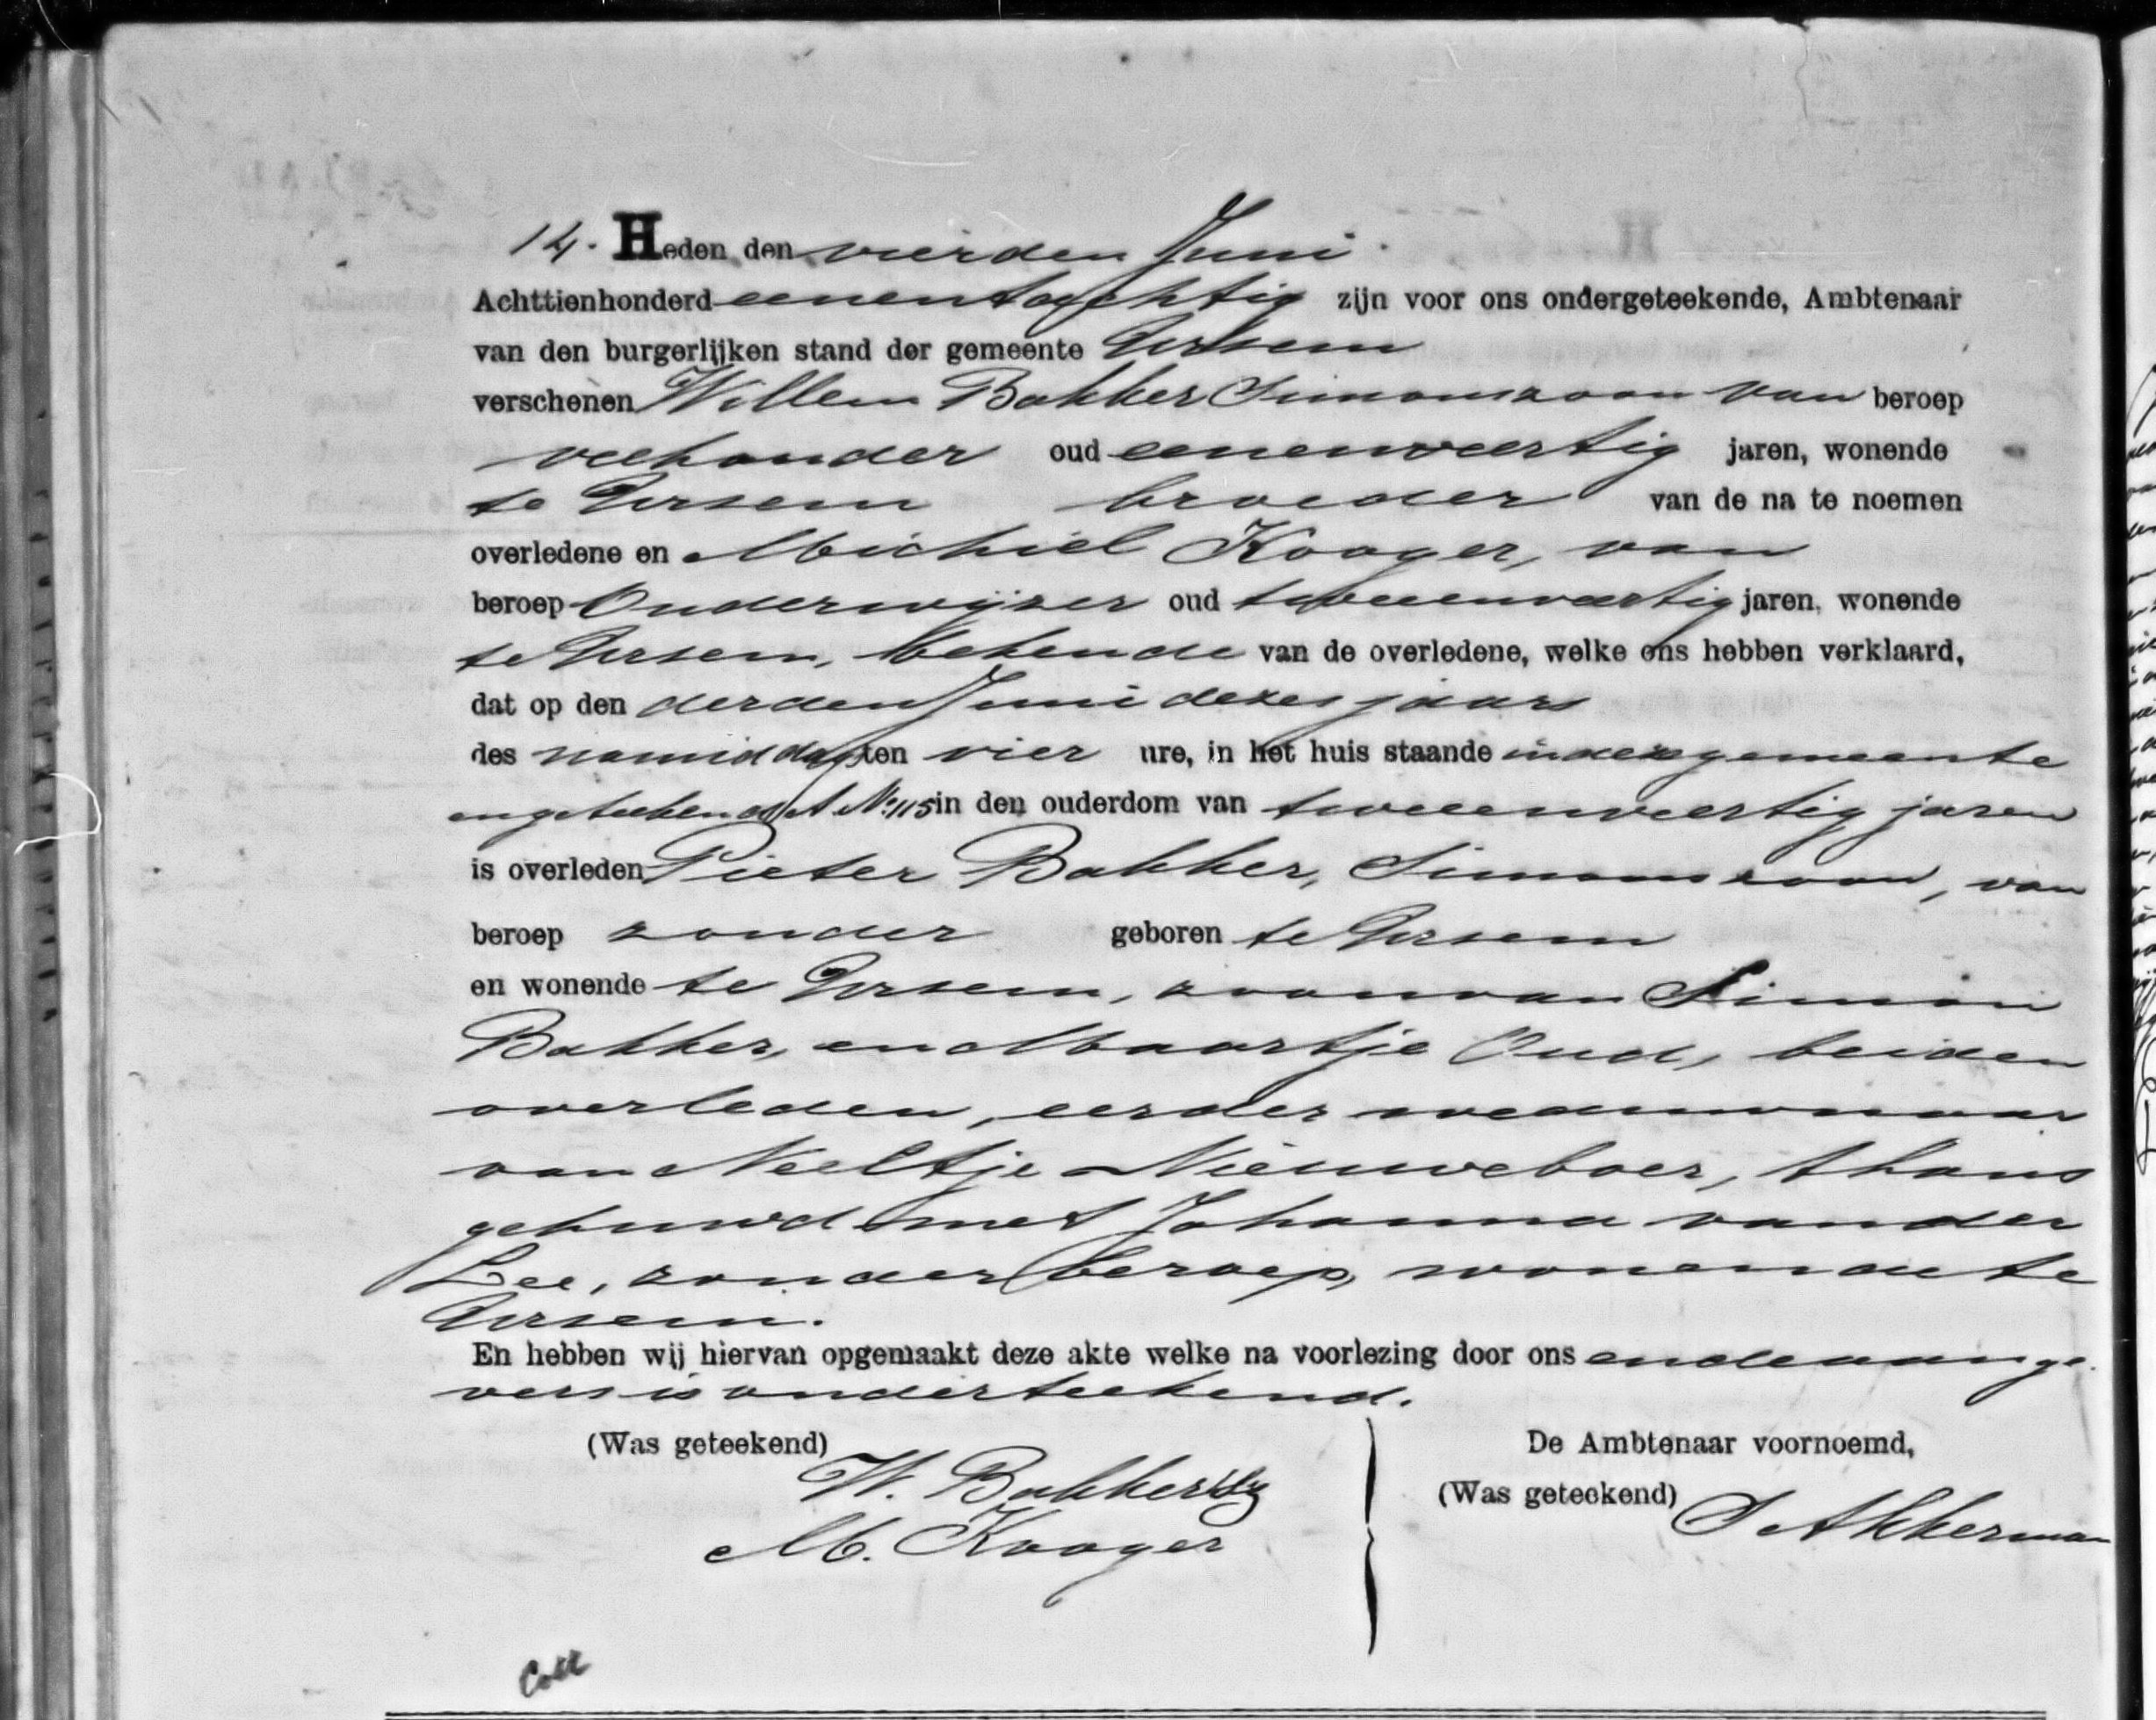 14. Heden den vierden Juni
Achttienhonderd eenentachtig zijn voor ons ondergeteekende, Ambtenaar
van den burgerlijken stand der gemeente Ursem
verschenen Willem Bakker Simonszoon van beroep
veehouder oud eenenveertig jaren, wonende
te Ursem broeder van de na te noemen
overledene en Michiel Kooger, van
beroep Onderwijzer oud tweeenveertig jaren, wonende
te Ursem, bekende van de overledene, welke ons hebben verklaard,
dat op den derden Juni dezes jaars
des namiddags ten vier ure, in het huis staande in deze gemeente
angeteekend A No. 115 in den ouderdom van tweeenveertig jaren
is overleden Pieter Bakker, Simonszoon, van
beroep zonder geboren te Ursem
en wonende te Ursem, zoon van Simon
Bakker, en Maartje Oud, beiden
overleden, eerder weduwnaar
van Neeltje Nieuweboer, thans
gehuwd met Johanna van der
Lee, zonder beroep, wonende te
Ursem.
En hebben wij hiervan opgemaakt deze akte welke na voorlezing door ons en de aange-
vers is onderteekend.
(Was geteekend) De Ambtenaar voornoemd,
W. Bakker Sz (Was geteekend)
M. Kooger S Akkerman
Coll